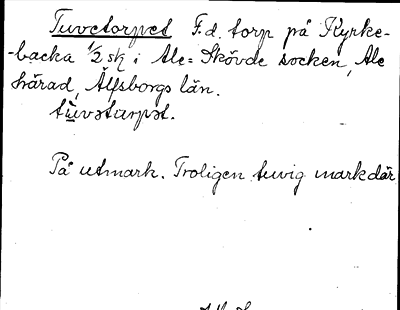 Tuvetorpet F.d. torp på Kyrke-
-backa 1/2 sk i Ale-Skövde socken, Ale
härad, Älfsborgs län.
tuvətarpət.
På utmark. Troligen tuvig mark där